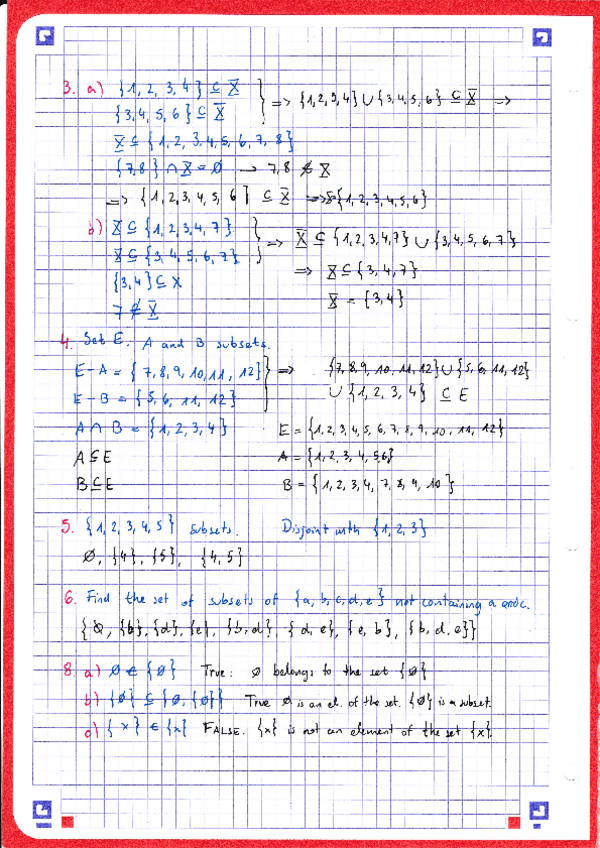 3. a) {1, 2, 3, 4} ⊆ X } => {1, 2, 3, 4} ∪ {3, 4, 5, 6} ⊆ X =>
{3, 4, 5, 6} ⊆ X
X ⊆ {1, 2, 3, 4, 5, 6, 7, 8}
{7, 8} ∩ X = ∅ → 7, 8 ∉ X
=> {1, 2, 3, 4, 5, 6} ⊆ X => {1, 2, 3, 4, 5, 6}
b) X ⊆ {1, 2, 3, 4, 7} } => X ⊆ {1, 2, 3, 4, 7} ∪ {3, 4, 5, 6, 7}
X ⊆ {3, 4, 5, 6, 7} => X ⊆ {3, 4, 7}
{3, 4} ⊆ X X = {3, 4}
7 ∉ X
4. Set E. A and B subsets.
E - A = {7, 8, 9, 10, 11, 12} } => {7, 8, 9, 10, 11, 12} ∪ {5, 6, 11, 12}
E - B = {5, 6, 11, 12} ∪ {1, 2, 3, 4} ⊆ E
A ∩ B = {1, 2, 3, 4} E = {1, 2, 3, 4, 5, 6, 7, 8, 9, 10, 11, 12}
A ⊆ E A = {1, 2, 3, 4, 5, 6}
B ⊆ E B = {1, 2, 3, 4, 7, 8, 9, 10}
5. {1, 2, 3, 4, 5} subsets. Disjoint with {1, 2, 3}
∅, {4}, {5}, {4, 5}
6. Find the set of subsets of {a, b, c, d, e} not containing a and c.
{∅, {b}, {d}, {e}, {b, d}, {d, e}, {e, b}, {b, d, e}}
8. a) ∅ ∈ {∅} True: ∅ belongs to the set {∅}
b) {∅} ⊆ {∅, {∅}} True ∅ is an el. of the set. {∅} is a subset.
d) {x} ∈ {x} FALSE. {x} is not an element of the set {x}.